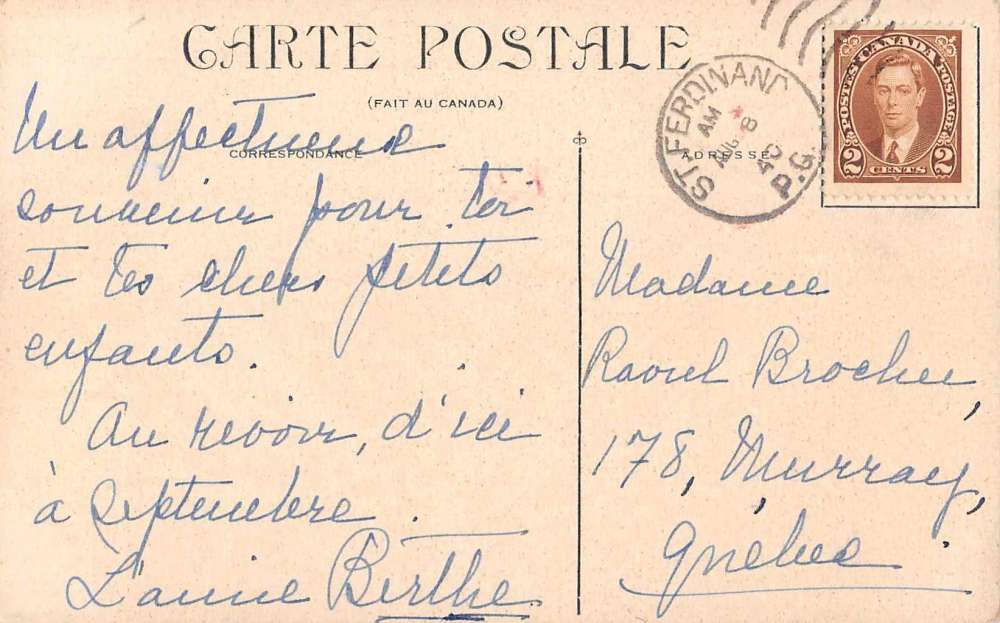 CARTE POSTALE
(FAIT AU CANADA)
CORRESPONDANCE
ADRESSE
ST. FERDINAND
AM
AUG 8
40
P.Q.
POSTES CANADA POSTAGE
2 CENTS 2
Un affectueux
souvenir pour toi
et tes chers petits
enfants.
Au revoir, d'ici
à septembre.
L'amie Berthe
Madame
Raoul Brochu,
178, Murray,
Québec